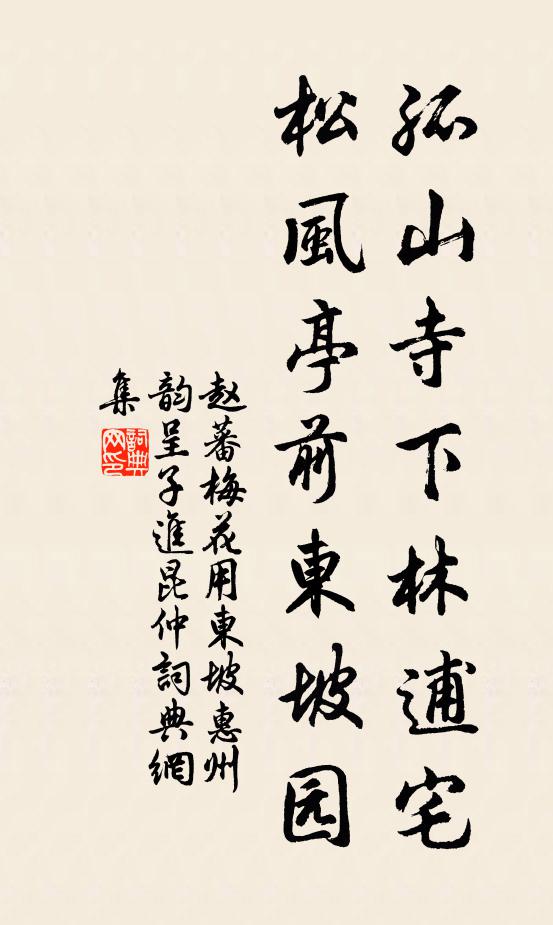 孤山寺下林逋宅
松風亭前東坡园
赵蕃梅花用東坡惠州
韵呈子進昆仲詞典網
集
詞典网印